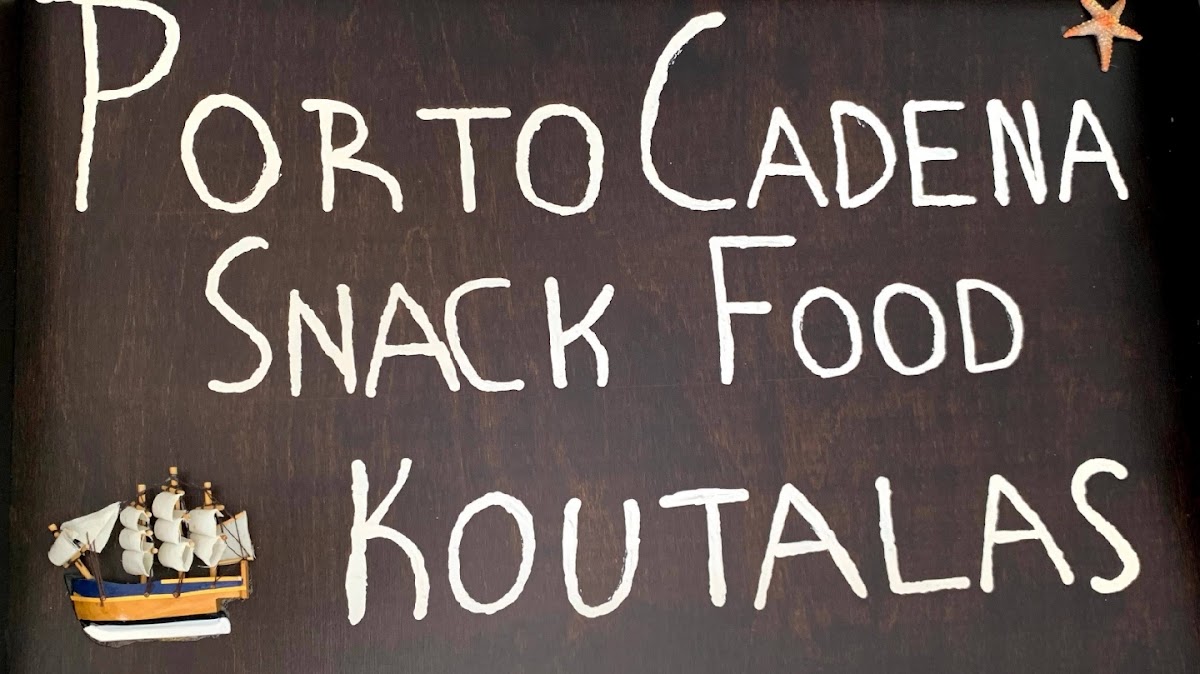 PORTO CADENA
SNACK FOOD
KOUTALAS